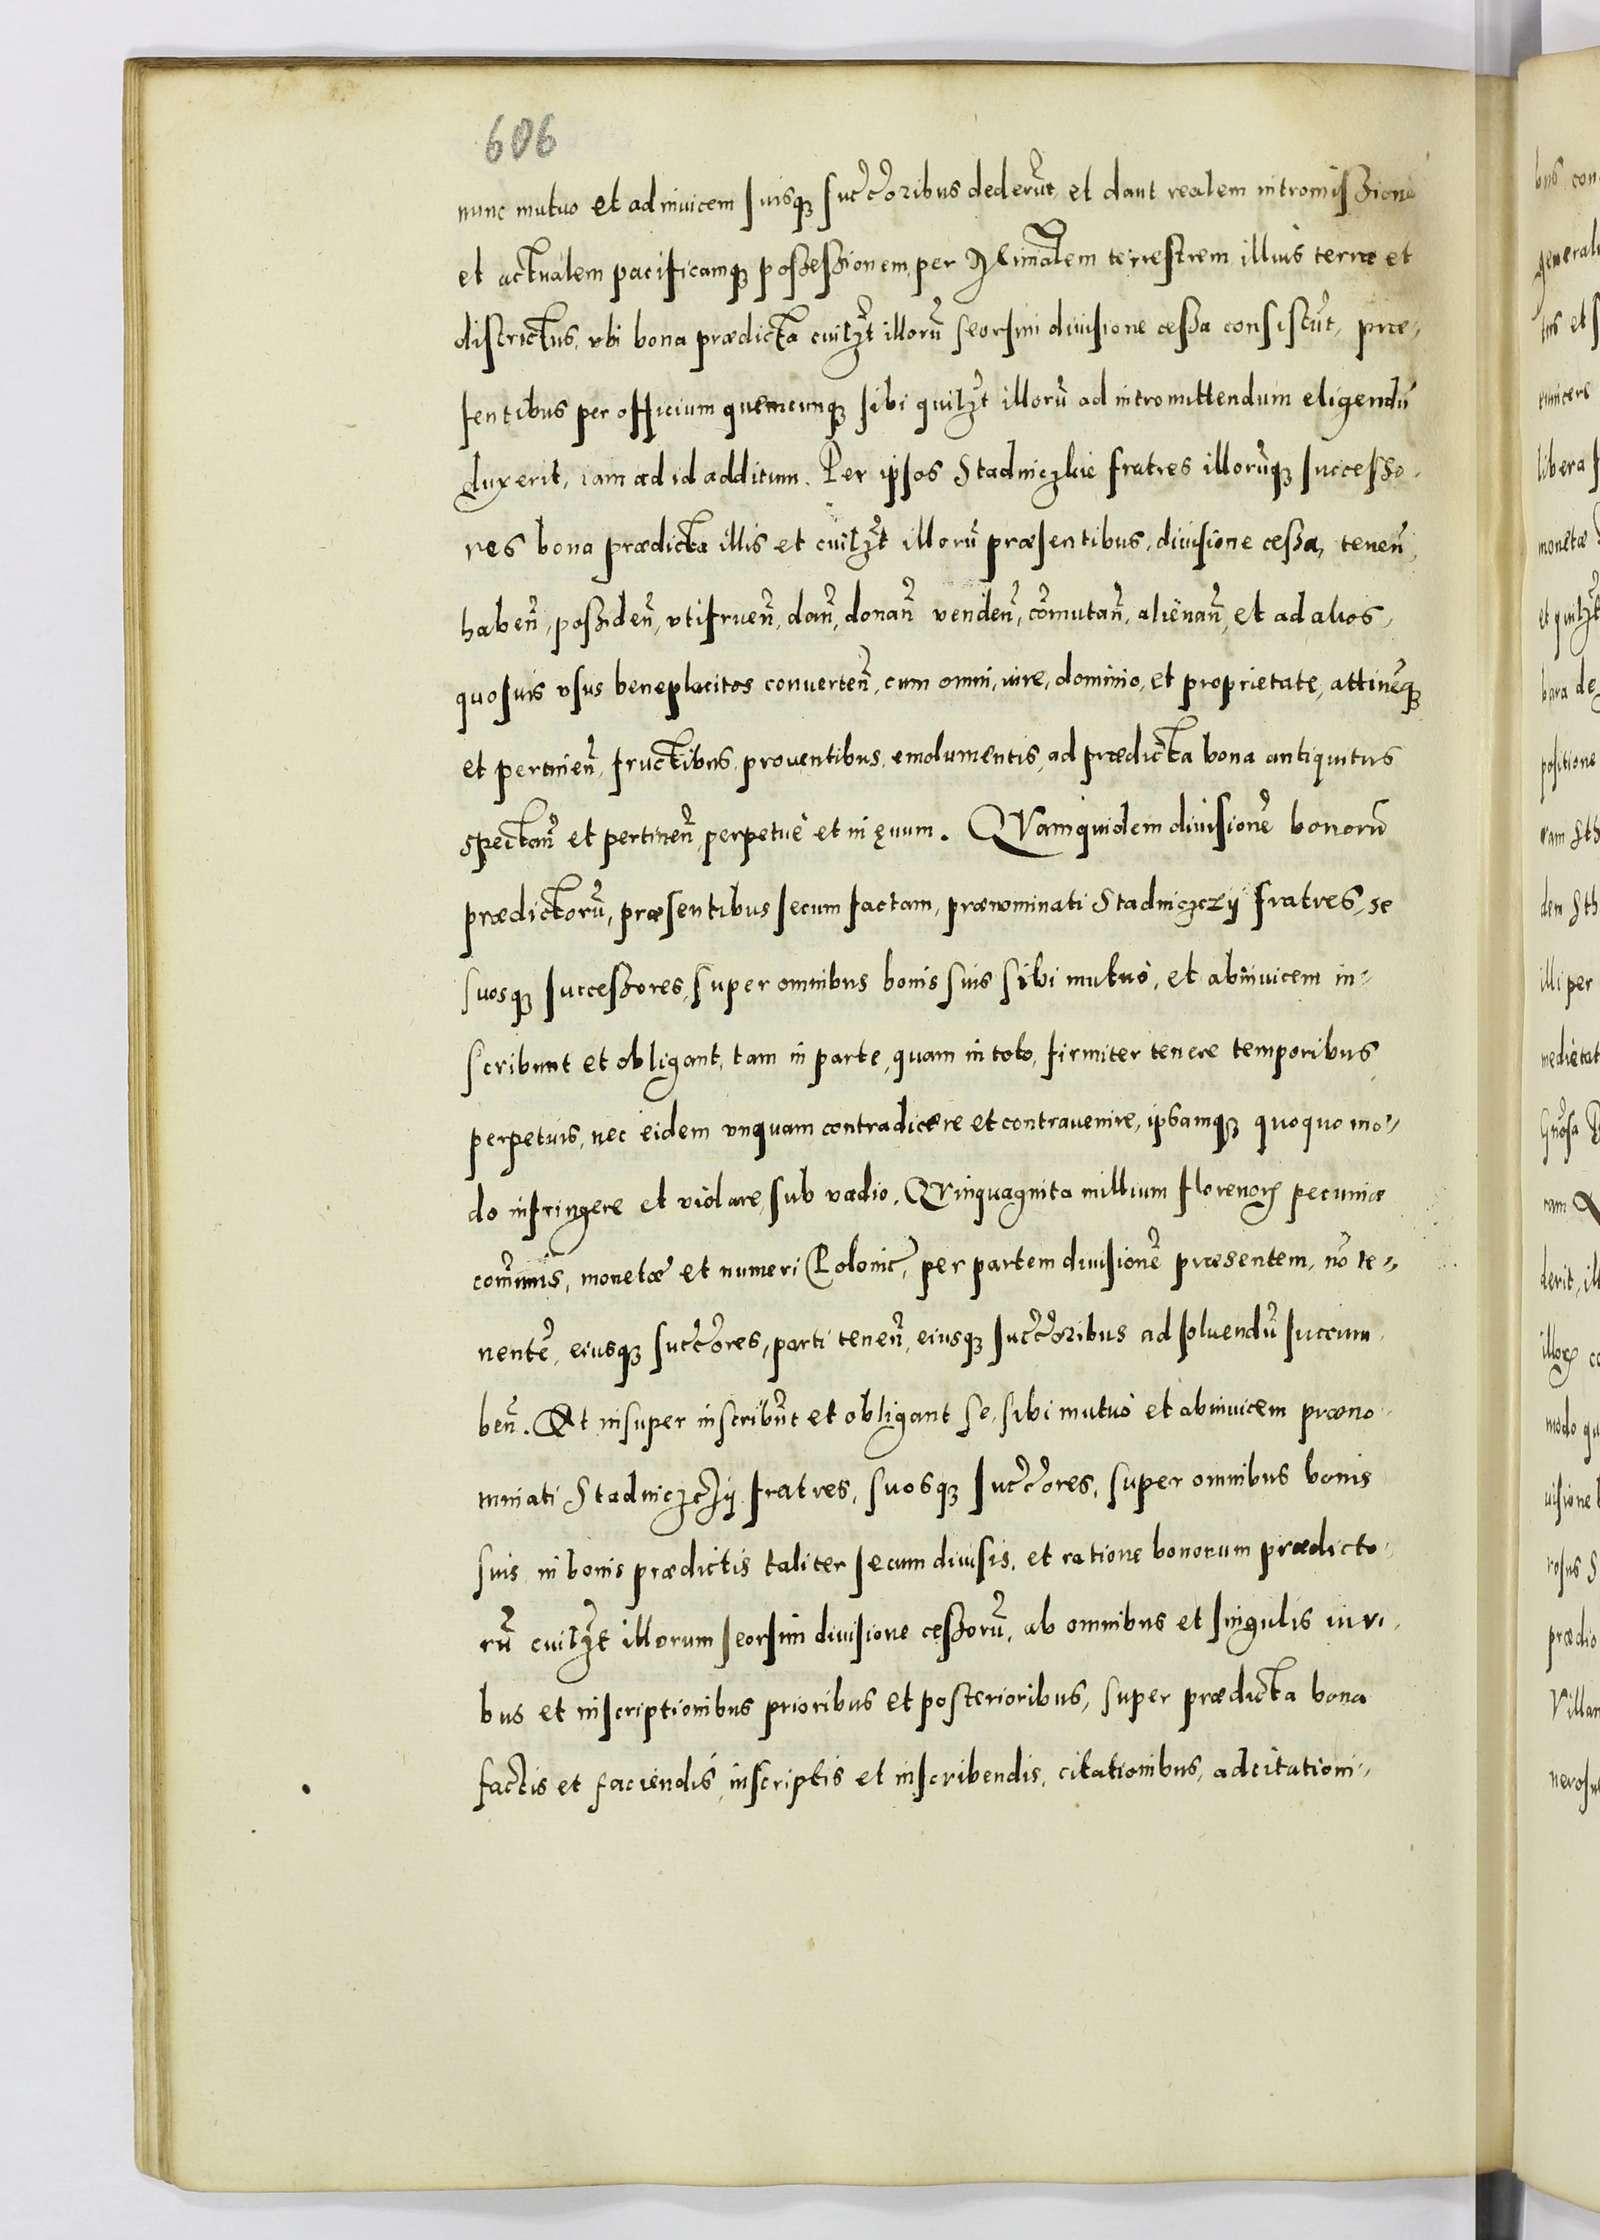 606
nunc mutuo et ad invicem suisq; succ̃oribus dederũt, et dant realem intromissionẽ
et actualem pacificamq; possessionem, per Mĩnĩalem terrestrem illius terræ et
districtus, vbi bona prædicta cuilz̃t illorũ seorsim diuisione cessa consistũt, præ„
sentibus per officium quemcunq; sibi quilz̃t illorũ ad intromittendum eligendũ
duxerit, iam ad id additum. Per ipsos Stadniczkie fratres illorũq; successo„
res bona prædicta illis et cuilz̃t illorũ præsentibus, diuisione cessa, tenen̄,
haben̄, possiden̄, vtifruen̄, dan̄, donan̄ venden̄, com̄utan̄, alienan̄, et ad alios,
quosuis vsus beneplacitos conuerten̄, cum omni, iure, dominio, et proprietate, attinẽq;
et pertinen̄, fructibus, prouentibus, emolumentis, ad prædicta bona antiquitus
spectan̄ et pertinen̄, perpetuè et in ęuum. QVamquidem diuisionẽ bonorũ
prædictorũ, præsentibus secum factam, prænominati Stadniczczij fratres, se
suosq; successores, super omnibus bonis suis sibi mutuò, et abinuicem in„
scribunt et obligant, tam in parte, quam in toto, firmiter tenere temporibus
perpetuis, nec eidem vnquam contradicere et contrauenire, ipsamq; quoquo mo„
do infringere et violare, sub vadio. QVinquaginta millium florenorꝝ pecuniæ
com̄unis, monetæ et numeri Polonic̃, per partem diuisionẽ præsentem, nõ te„
nentẽ, eiusq; succ̃ores, parti tenen̄, eiusq; succ̃oribus ad soluendũ succum„
ben̄. Et insuper inscribũt et obligant se, sibi mutuò et abinuicem præno„
minati Stadniczczij fratres, suosq; succ̃ores, super omnibus bonis
suis in bonis prædictis taliter secum diuisis, et ratione bonorum prædicto„
rũ cuilz̃t illorum seorsim diuisione cessorũ, ab omnibus et singulis iuri„
bus et inscriptionibus prioribus et posterioribus, super prædicta bona
factis et faciendis, inscriptis et inscribendis, citationibus, adcitationi„